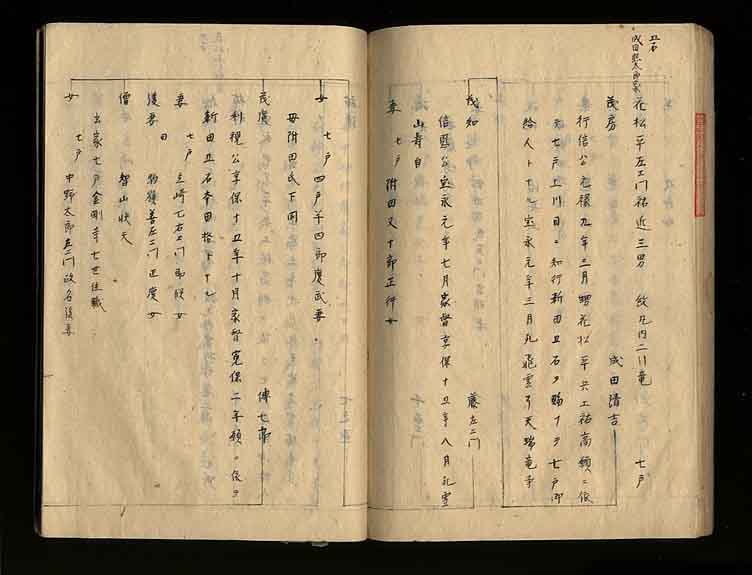 五石
成田忠太郎家
花松平左エ門祐近三男 紋丸内二川竜 七戸
成田清吉
茂房
行信公元禄九年三月 花松平兵エ祐高願ニ依
テ七戸上川目ニ知行新田五石ヲ賜ナリ七戸御
給人トナル宝永元年三月死 雲了天 瑞竜寺
藤左エ門
茂知
信恩公宝永元年七月家督享保十五年八月死雪
山寿白
妻 七戸附田又十郎正行女
女 七戸四戸平四郎慶武妻
母附田氏下同
伝七郎
茂慶
利視公享保十五年十月家督寛保二年願ニ依リ
新田五石本田格トナル
妻 七戸三崎乙右エ門 女
後妻 同 善左エ門正慶女
僧 智山快天
出家七戸金剛寺七世住職
女 七戸中野太郎左エ門政名後妻